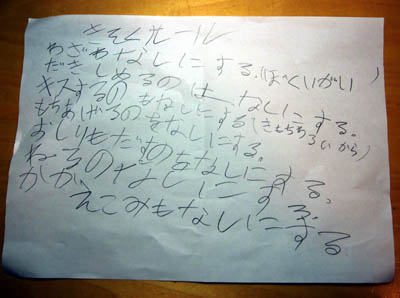 きそくルール
わざわなしにする。(ぼくいがい)
だきしめるのは、なしにする。
キスするのもなしにする(きもちわるいから)
もちあげるのをなしにする。
おしりもだすのをなしにする。
なしにする。
えこみもなしにする